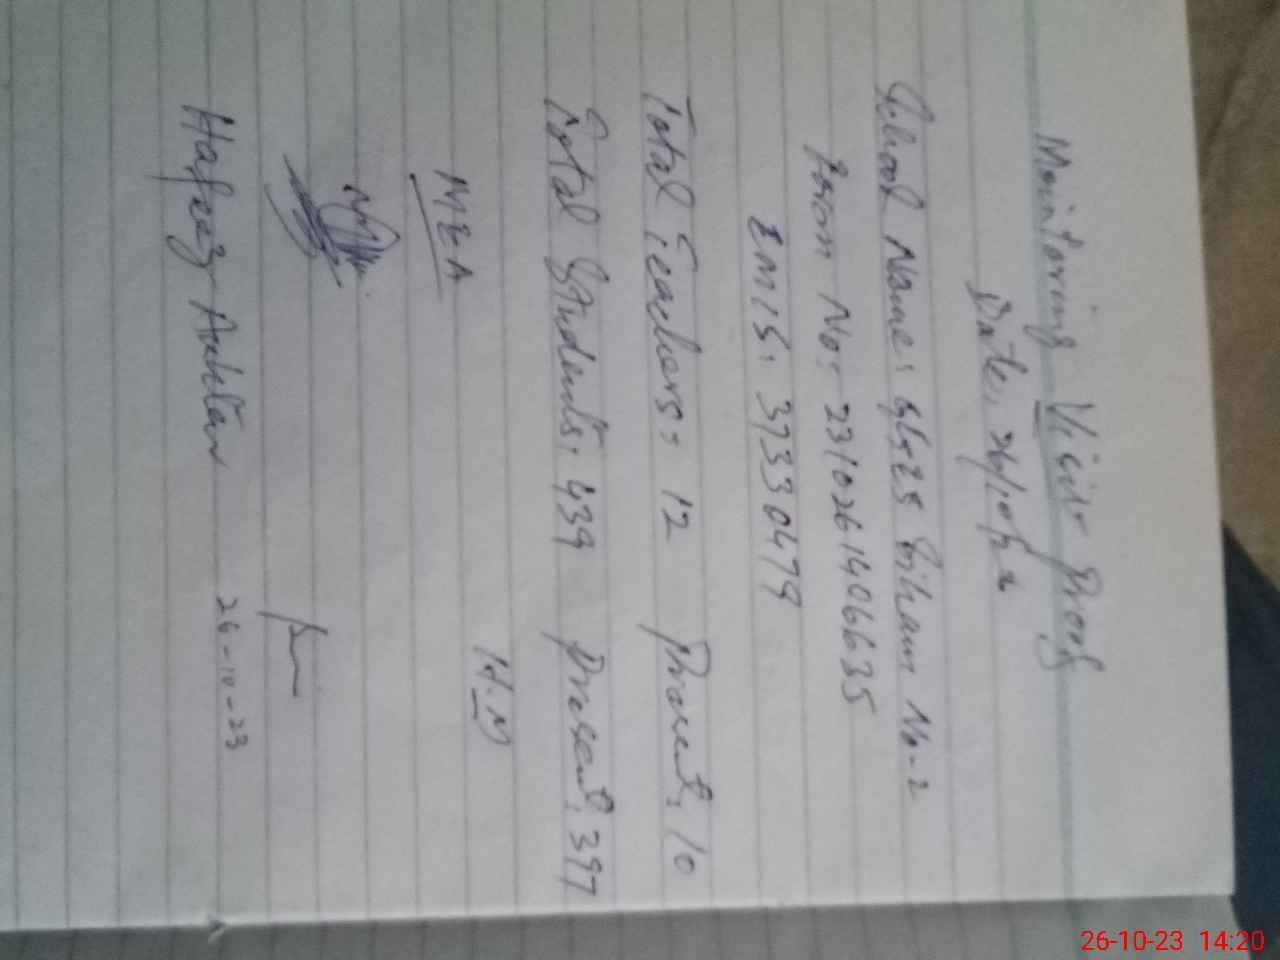 Monitoring Visit Proof
Date: 26/10/
School Name: Biham No-2
No: 2310261406635
EMIS: 37330479
Total Teachers: 12 Present: 10
Total Students: 439 Present: 397
MEA H.M
Hafeez Akhtar 26-10-23
26-10-23 14:20